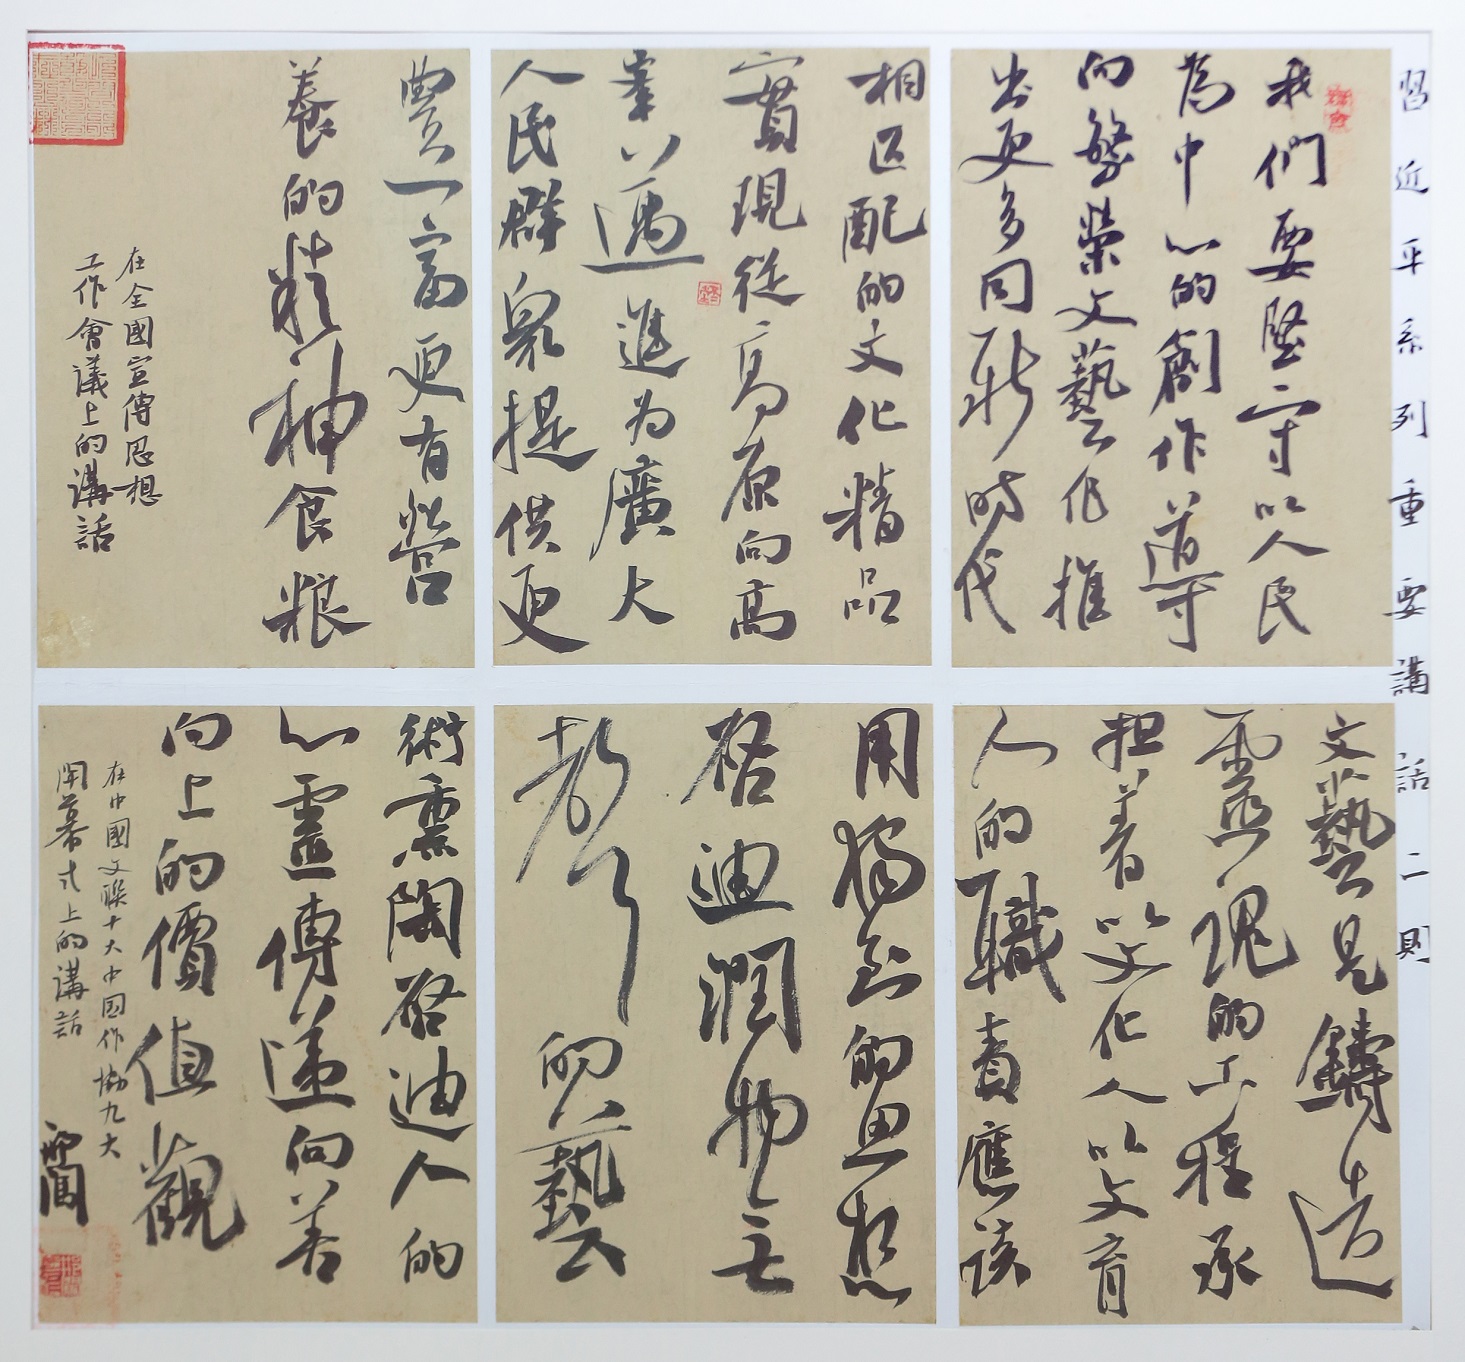 習近平系列重要講話二則
我們要堅守以人民
為中心的創作導
向繁榮文藝作推
出更多同新時代
相匹配的文化精品
實現從高原向高
峯以邁進为廣大
人民群眾提供更
豐富更有營
養的精神食粮
在全國宣傳思想
工作會議上的講話
文藝是鑄造
靈魂的工程承
担着以文化人以文育
人的職責應該
用獨到的思想
啓迪潤物無
聲的藝
術熏陶啓迪人的
心靈傳遞向善
向上的價值觀
在中國文聯十大中国作協九大
開幕式上的講話